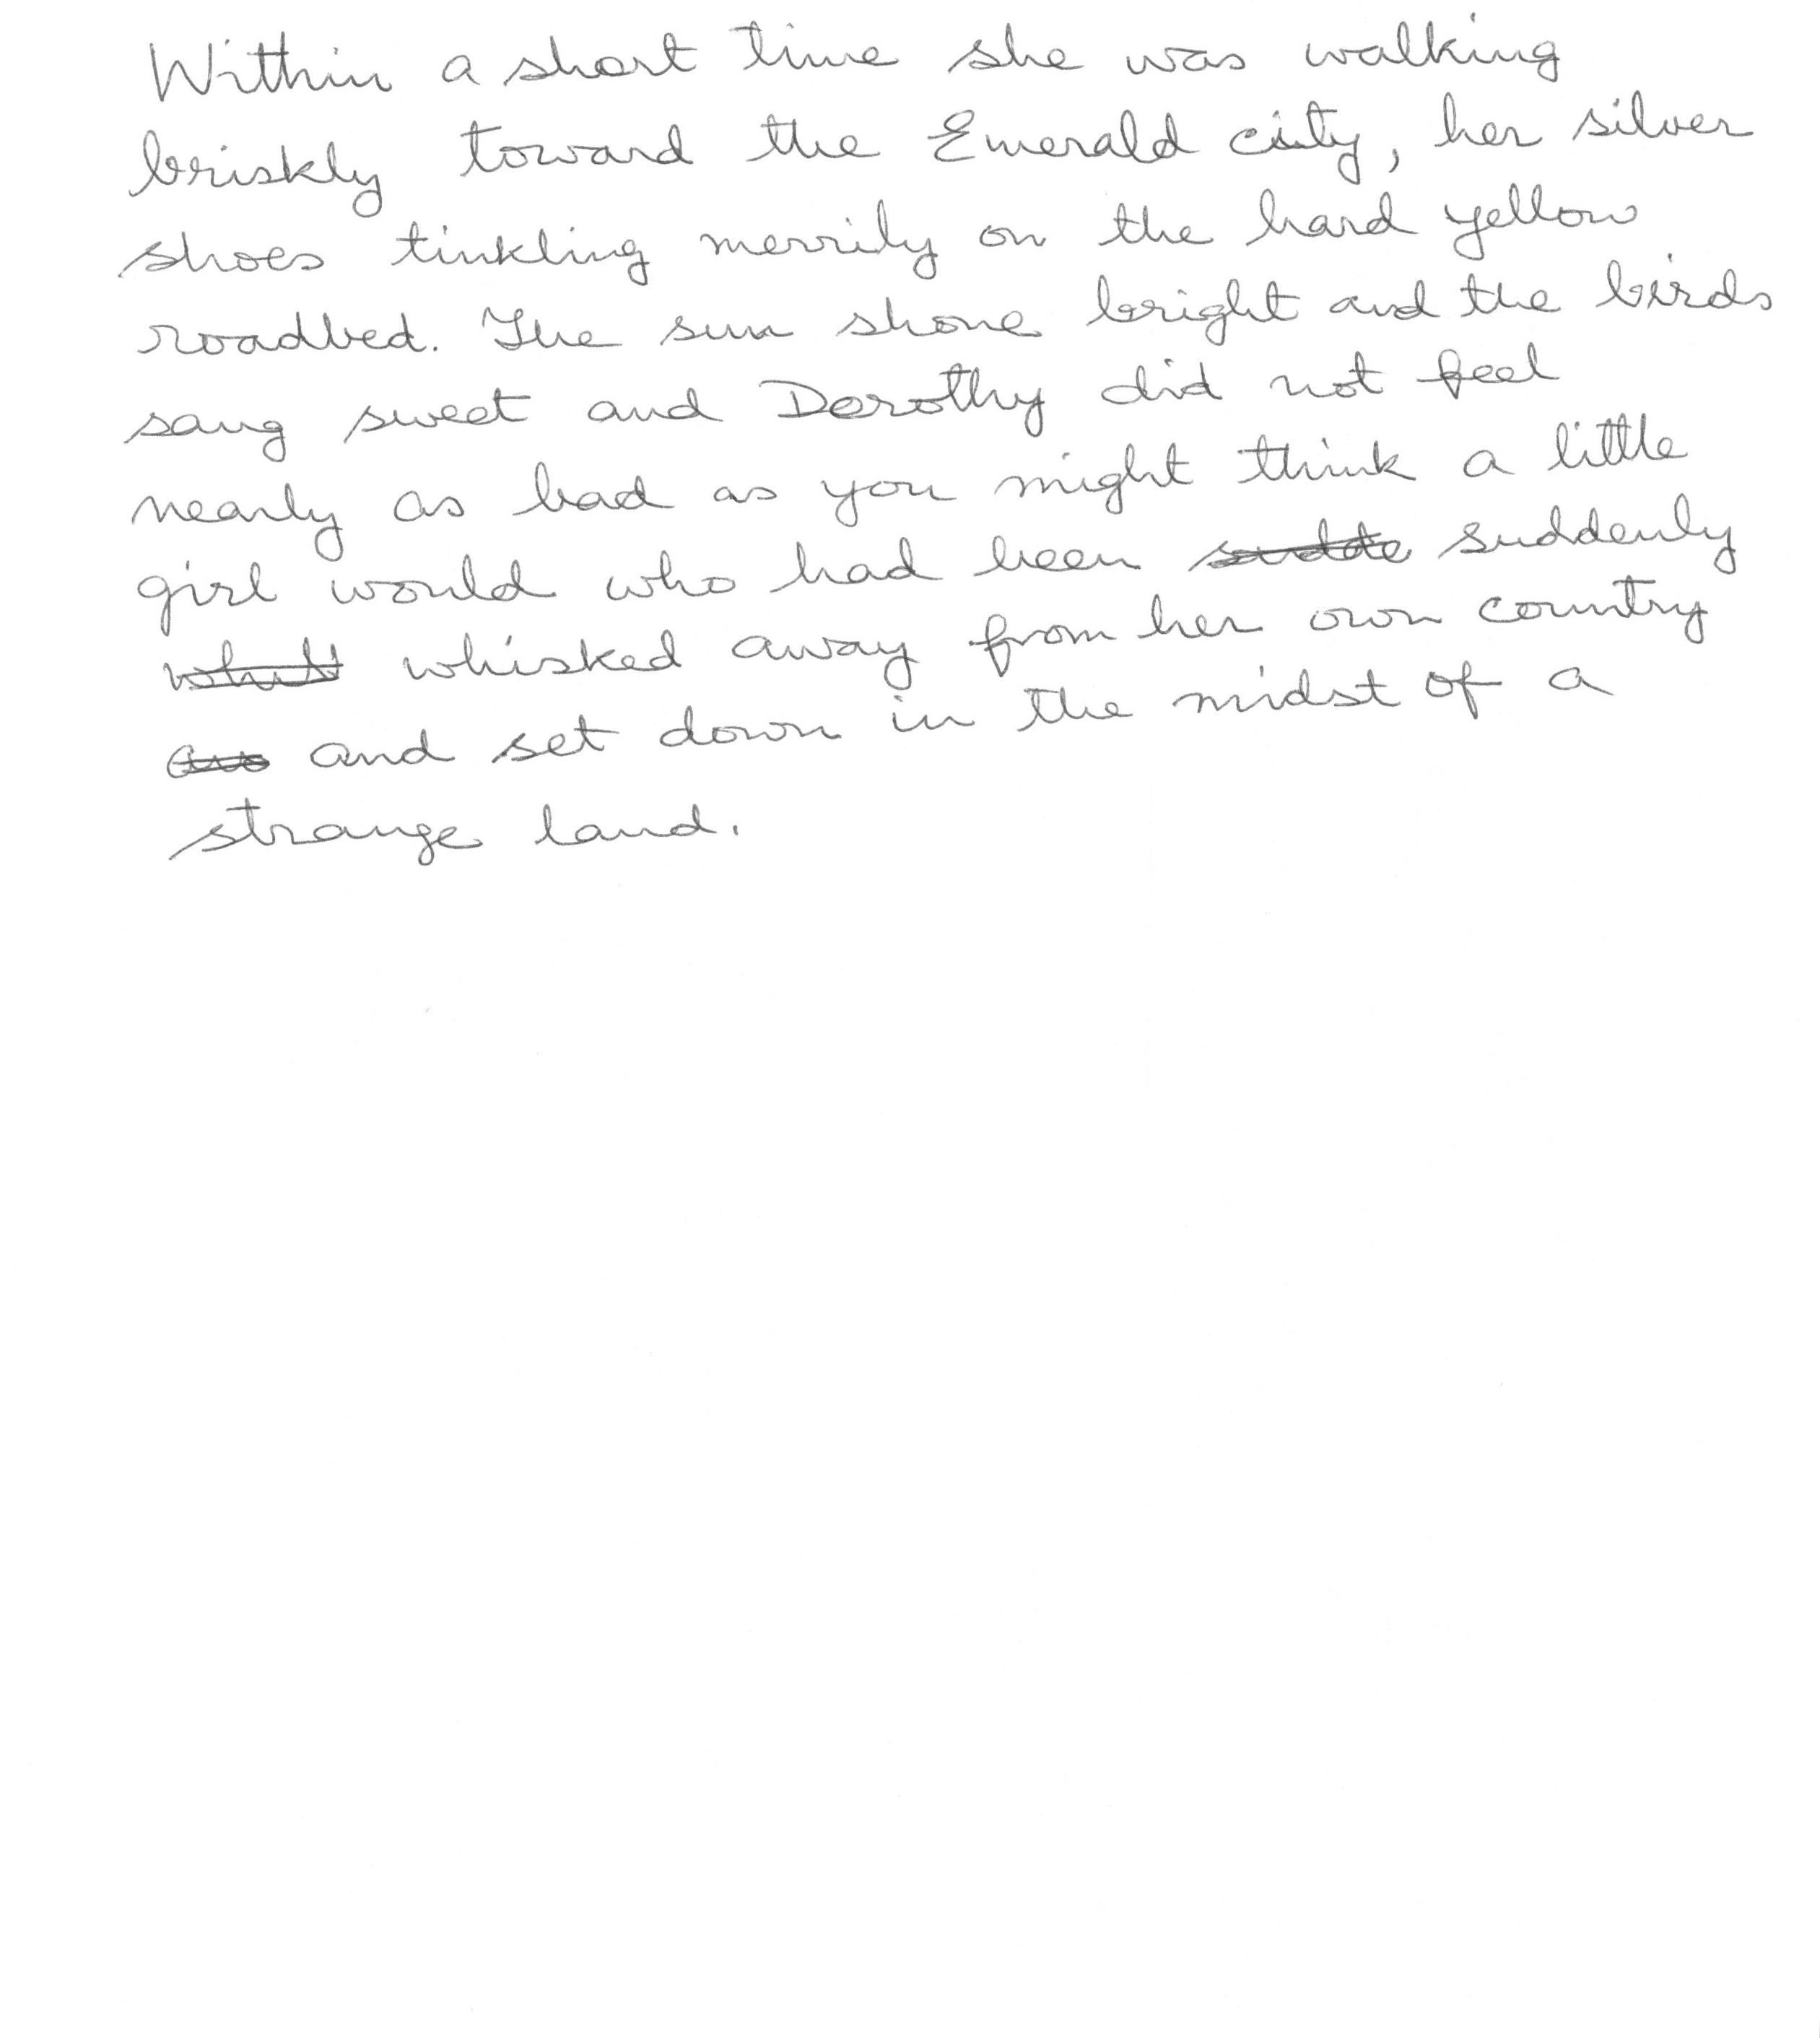 Within a short time she was walking
briskly toward the Emerald city, her silver
shoes tinkling merrily on the hard yellow
roadbed. The sun shone bright and the birds
sang sweet and Dorothy did not feel
nearly as bad as you might think a little
girl would who had been suddenly
whisked away from her own country
and set down in the midst of a
strange land.